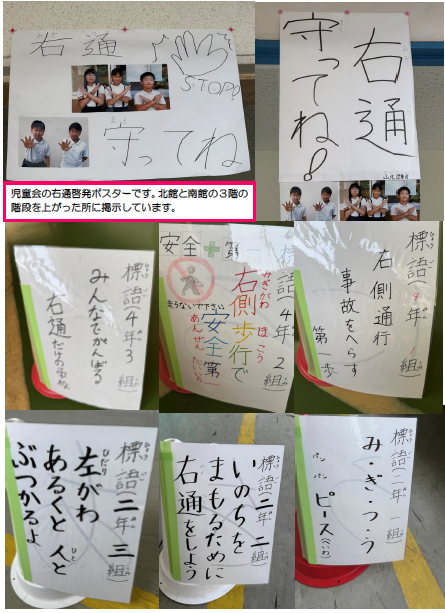 右通
STOP!
守ってね
児童会の右通啓発ポスターです。北館と南館の３階の
階段を上がった所に掲示しています。
右通
守ってね!
標語(４年３組)
みんなでがんばる
安全＋第一
標語(４年２組)
みぎがわ ほこう
右側歩行で
あんぜんだいいち
安全第一
走らないで下さい
右側通行
事故をへらす
第一歩
標語二年三組
ひだり
左がわ
あるくと人と
ひと
ぶつかるよ
標語二年二組
いのちを
まもるために
右通をしよう
標語二年一組
み・ぎ・つ・う
パン パン ピース(へいわ)